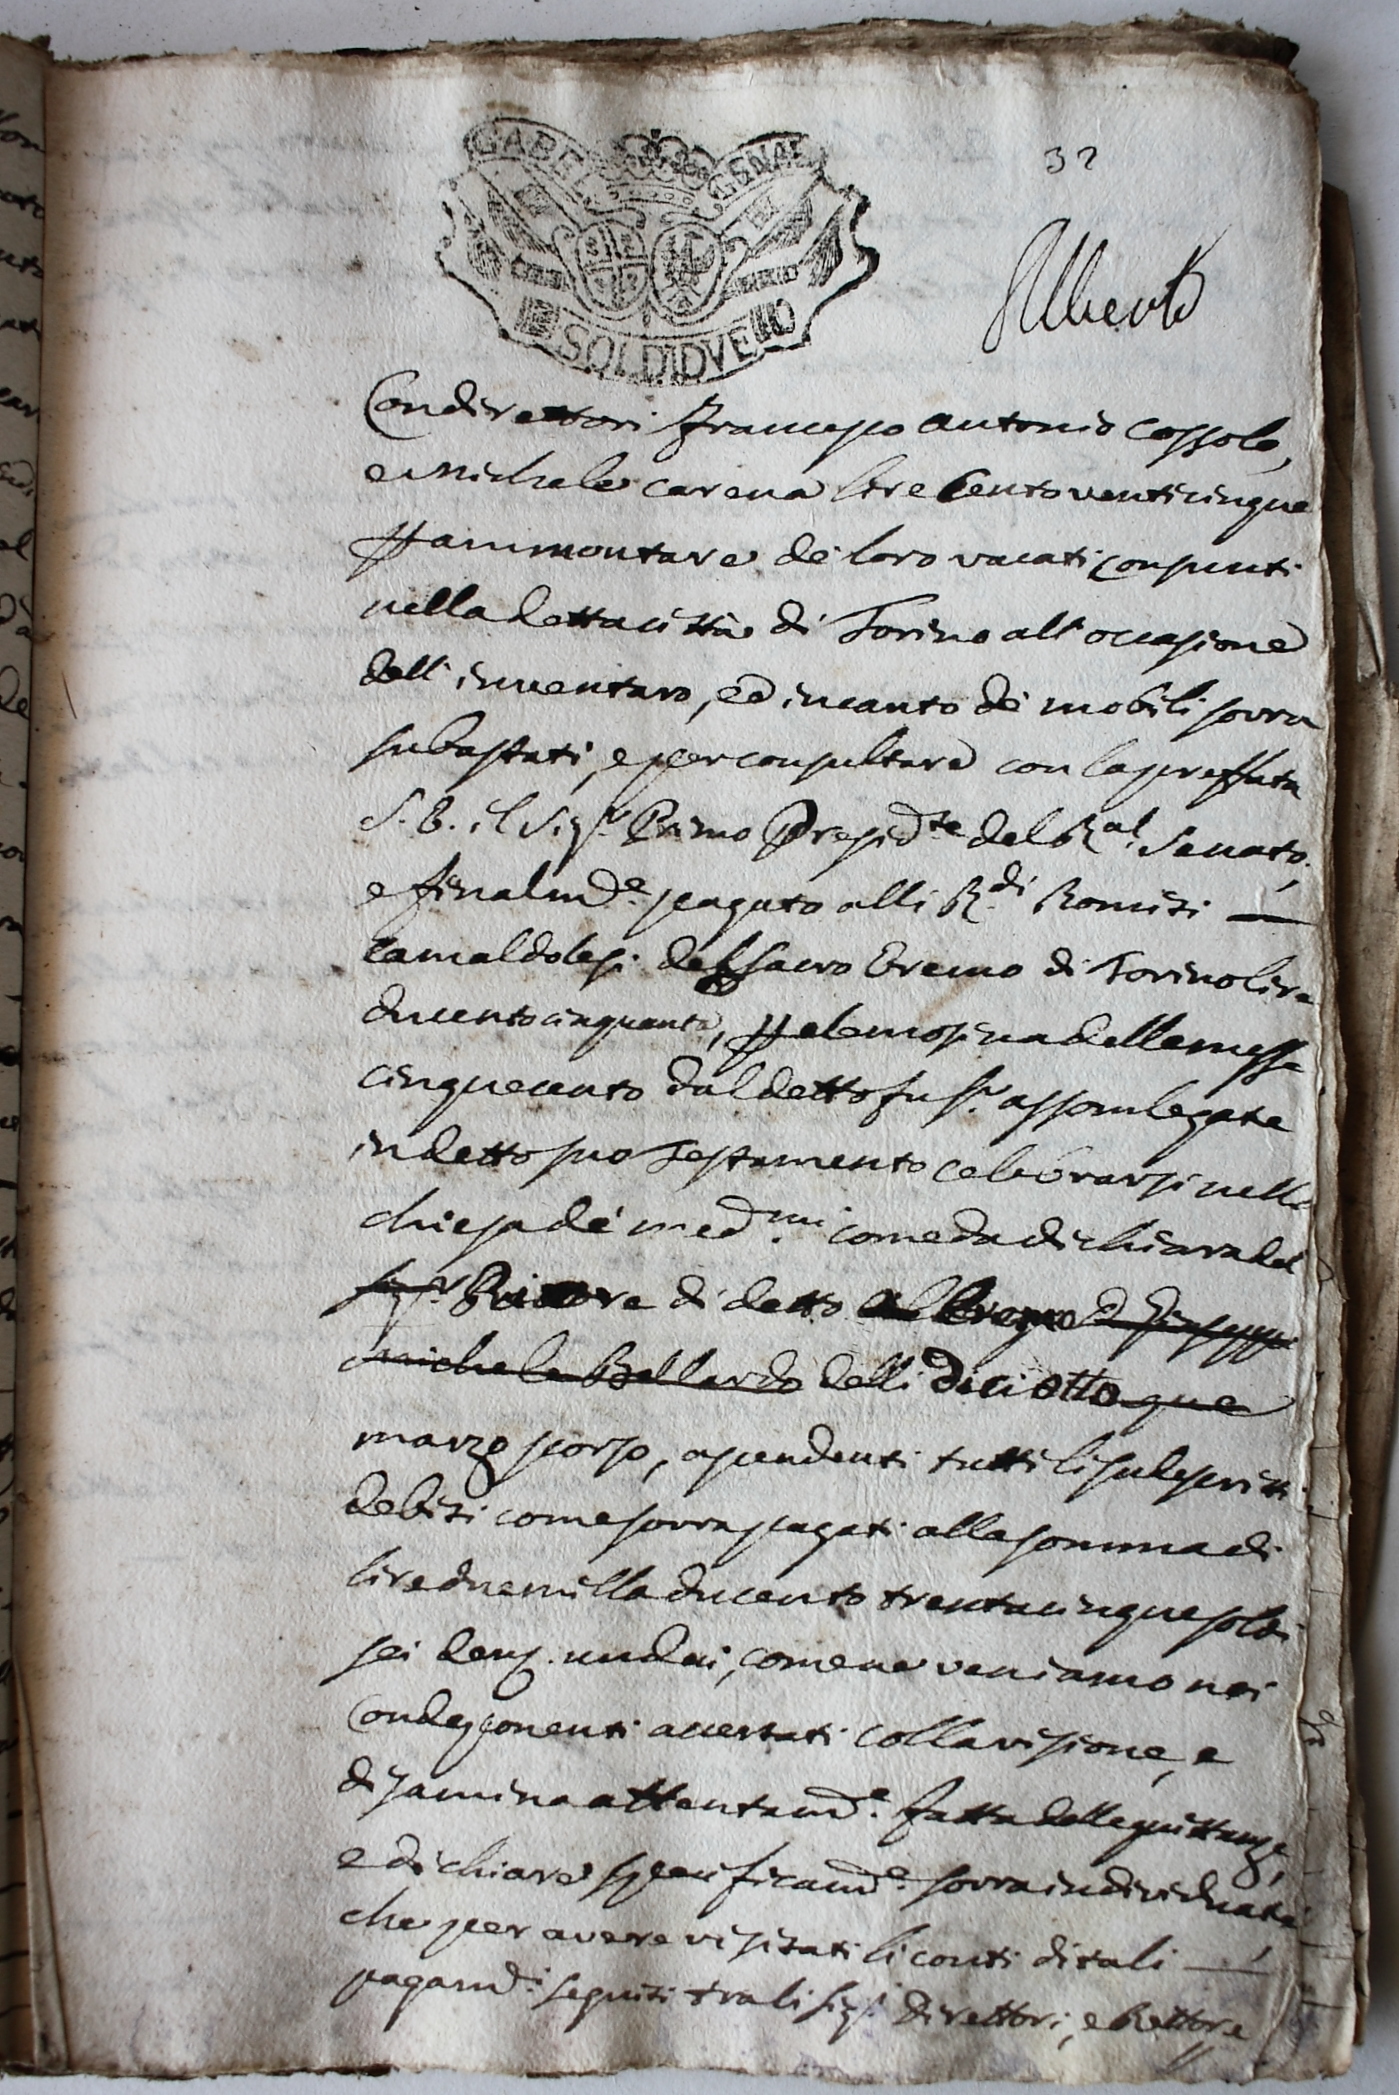 32
GABEL GENAE
SOLDI DVE
Alberto
Condirettori Francesco Antonio Cossola,
e Michele Carena lire Cento venticinque
p ammontare de loro vacati consunti
nella detta città di Torino all'occasione
dell'inventaro, ed incanto de mobili sovra
subastati, e per consultare con la preffata
S. E. il Sig.r Primo Presid.te del R.al Senato,
e finalm.e pagato alli R.di Romiti
Camaldolesi del Sacro Eremo di Torino lire
ducento cinquanta, p elemosina delle messe
cinquecento dal detto fu Sr. asson legate
in detto suo Testamento celebrarsi nella
chiesa de med.mi come da dichiara del
Sig.r Priore di detto Eremo D. Giuseppe
Michele Ballardo delli diciotto que
marzo scorso, ascendenti tutti li sudescritti
debiti come sovra pagati alla somma di
lire due milla ducento trentacinque soldi
sei den. undeci, come ne veniamo noi
Condeponenti accertati colla visione, e
disamina attentam.e fatta delle quittanze,
e dichiare specificam.e sovra individuate
che per avere visitati li conti di tali
pagam.i seguiti tra li Sig.i Direttori, e Rettore